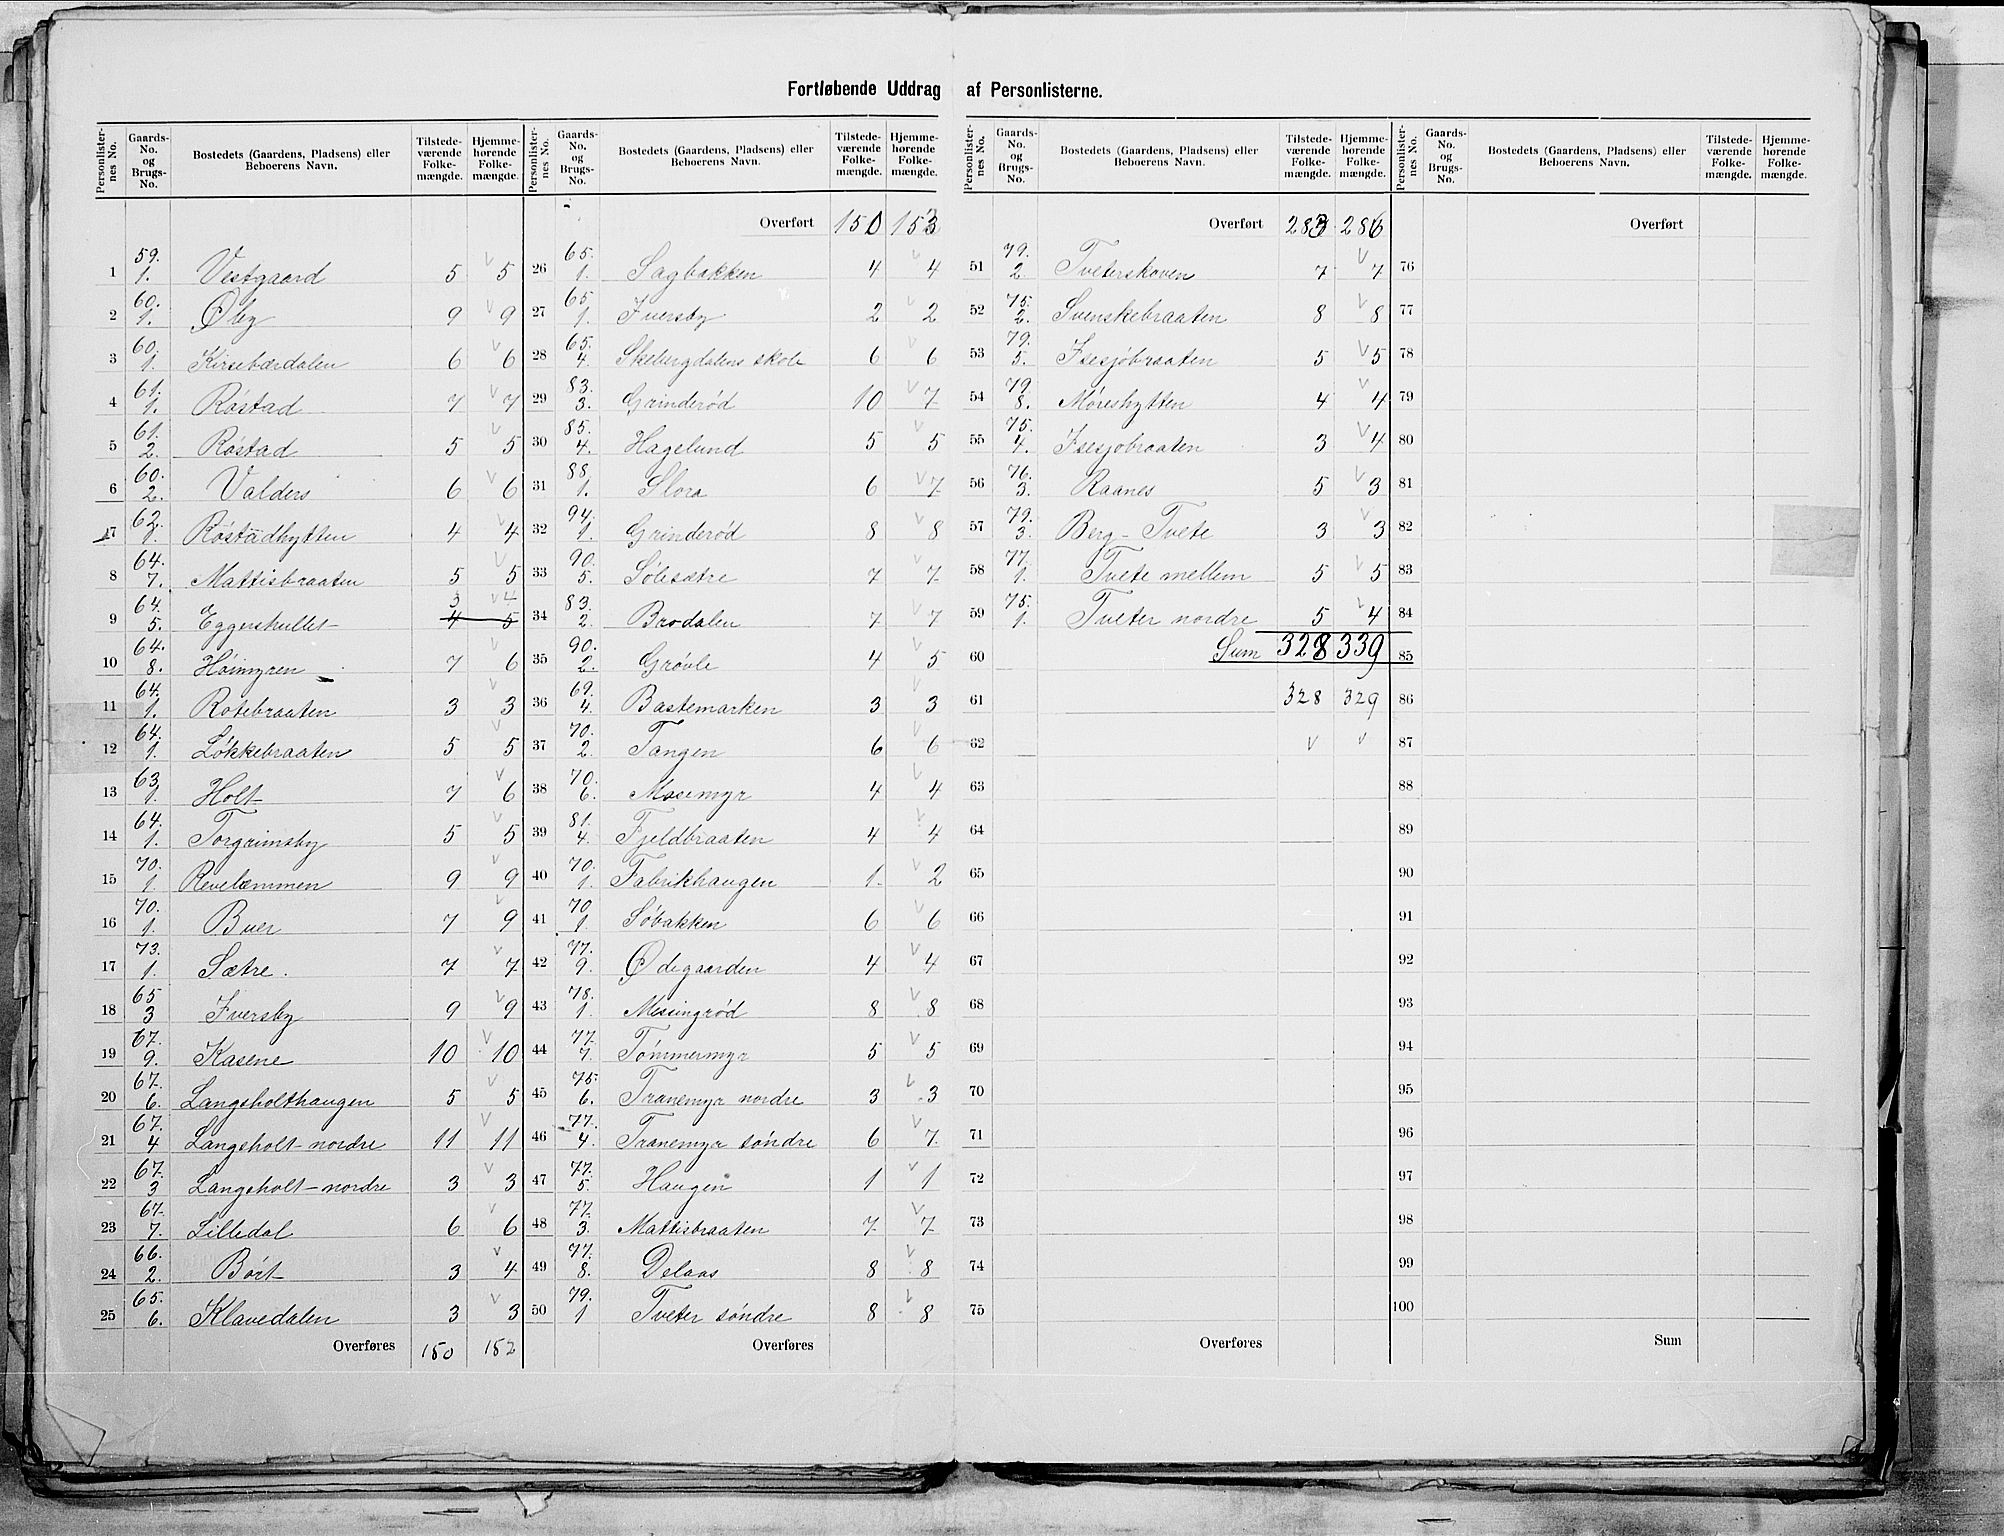 Fortløbende Uddrag af Personlisterne.
Personlister-nes No. | Gaards-No. og Brugs-No. | Bostedets (Gaardens, Pladsens) eller Beboerens Navn. | Tilstede-værende Folke-mængde. | Hjemme-hørende Folke-mængde.
1 | 59. 1. | Vestgaard | 5 | 5
2 | 60. 1. | Øby | 9 | 9
3 | 60. 1. | Kirsebærdalen | 6 | 6
4 | 61. 1. | Røstad | 7 | 7
5 | 61. 2. | Røstad | 5 | 5
6 | 60. 2. | Valders | 6 | 6
7 | 62. 1. | Røstadhytten | 4 | 4
8 | 64. 7. | Mattisbraaten | 5 | 5
9 | 64. 5. | Eggershullet | 3 | 4
4 | 5
10 | 64. 8. | Høimyren | 7 | 6
11 | 64. 1. | Rotebraaten | 3 | 3
12 | 64. 1. | Løkkebraaten | 5 | 5
13 | 63. 1. | Holt | 7 | 6
14 | 64. 1. | Torgrimsby | 5 | 5
15 | 70. 1. | Revelæmmen | 9 | 9
16 | 70. 1. | Buer | 7 | 9
17 | 73. 1. | Sætre. | 7 | 7
18 | 65 3 | Iversby | 9 | 9
19 | 67. 9. | Kasene | 10 | 10
20 | 67. 6. | Langsholthaugen | 5 | 5
21 | 67. 4 | Langsholt-nordre | 11 | 11
22 | 67. 3 | Langsholt-nordre | 3 | 3
23 | 67. 7. | Lilledal | 6 | 6
24 | 66. 2. | Børt | 3 | 4
25 | 65. 6. | Klavedalen | 3 | 3
Overføres | 150 | 152
Personlister-nes No. | Gaards-No. og Brugs-No. | Bostedets (Gaardens, Pladsens) eller Beboerens Navn. | Tilstede-værende Folke-mængde. | Hjemme-hørende Folke-mængde.
Overført | 150 | 153
26 | 65. 1. | Sagbakken | 4 | 4
27 | 65. 1. | Iversby | 2 | 2
28 | 65. 4. | Skebergdalens skole | 6 | 6
29 | 83. 3. | Grinderød | 10 | 7
30 | 85. 4. | Hagelund | 5 | 5
31 | 88. 1. | Slora | 6 | 7
32 | 94. 1. | Grinderød | 8 | 8
33 | 90. 5. | Solesætre | 7 | 7
34 | 83. 2. | Brodalen | 7 | 7
35 | 90. 2. | Grøvle | 4 | 5
36 | 69. 4. | Bastemarken | 3 | 3
37 | 70. 2. | Tangen | 6 | 6
38 | 70. 6. | Mosemyr | 4 | 4
39 | 81. 4. | Fjeldbraaten | 4 | 4
40 | 70. 1. | Fabrikhaugen | 1. | 2
41 | 70 1. | Søbakken | 6 | 6
42 | 77. 9. | Ødegaarden | 4 | 4
43 | 78. 1. | Missingrød | 8 | 8
44 | 77. 7. | Tømmermyr | 5 | 5
45 | 75. 6. | Tranemyr nordre | 3 | 3
46 | 77. 4. | Tranemyr søndre | 6 | 7.
47 | 77. 5. | Haugen | 1 | 1
48 | 77. 3. | Mattisbraaten | 7 | 7
49 | 77. 8. | Delaas | 8 | 8
50 | 79. 1 | Tveter søndre | 8 | 8
Overføres
Personlister-nes No. | Gaards-No. og Brugs-No. | Bostedets (Gaardens, Pladsens) eller Beboerens Navn. | Tilstede-værende Folke-mængde. | Hjemme-hørende Folke-mængde.
Overført | 283 | 286
51 | 79. 2 | Tveterskoven | 7 | 7
52 | 75. 2. | Svenskebraaten | 8 | 8
53 | 79. 5. | Isesjøbraaten | 5 | 5
54 | 79. 8. | Møreshytten | 4 | 4
55 | 75. 4. | Isesjøbraaten | 3 | 4
56 | 76. 3. | Raanes | 5 | 3
57 | 79. 3. | Berg-Tvete | 3 | 3
58 | 77. 1. | Tvete mellem | 5 | 5
59 | 75. 1. | Tveter nordre | 5 | 4
60 | Sum | 328 | 339
61 | 328 | 329
62
63
64
65
66
67
68
69
70
71
72
73
74
75
Overføres
Personlister-nes No. | Gaards-No. og Brugs-No. | Bostedets (Gaardens, Pladsens) eller Beboerens Navn. | Tilstede-værende Folke-mængde. | Hjemme-hørende Folke-mængde.
Overført
76
77
78
79
80
81
82
83
84
85
86
87
88
89
90
91
92
93
94
95
96
97
98
99
100
Sum